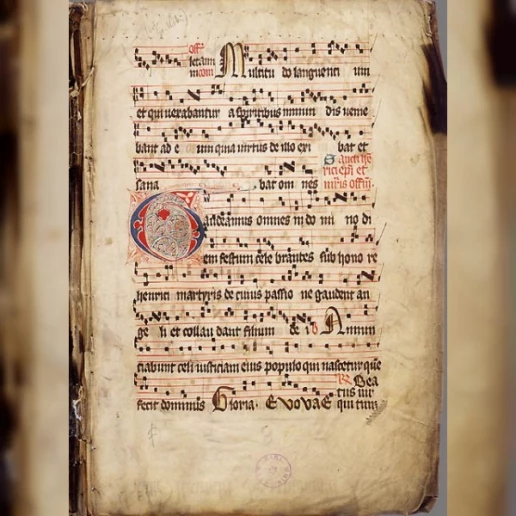 letam Off
in com Multitu do languenti um
et qui vexabantur a spiritibus inmun dis venie
bant ad e um quia virtus de illo exi bat et
sana bat om nes
Sancti he
rici epi et
mris offm
Gaudeamus omnes in do mi no di
em festum cele brantes sub hono re
henrici martyris de cuius passio ne gaudent an
ge li et collau dant filium de i Annun
ciabunt celi iusticiam eius populo qui nascetur que
fecit dominus Gloria. Evovae
R Bea
tus vir
qui tim